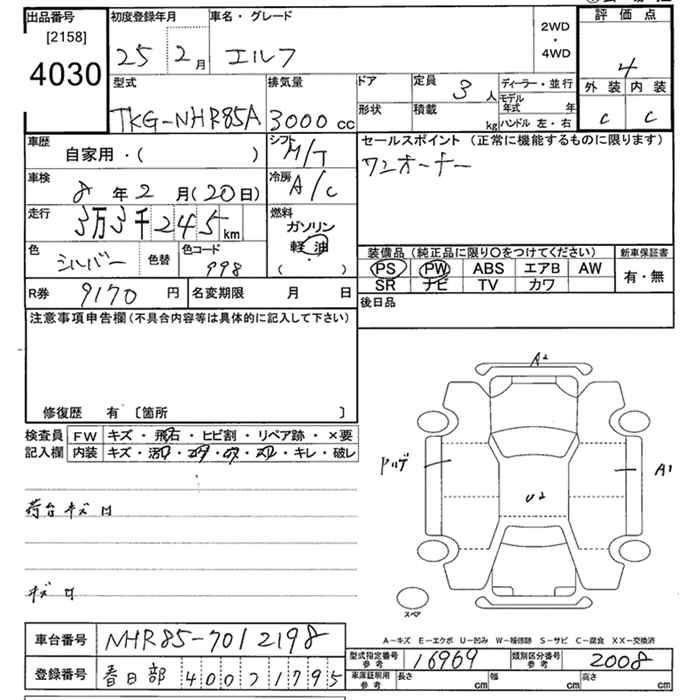 出品番号 初度登録年月 車名・グレード 評価点
[2158] 25 2月 エルフ 2WD・4WD 4
4030
型式 排気量 ドア 定員 3人 ディーラー・並行 外装 内装
TKG-NHR85A 3000cc 形状 積載 kg モデル年式 年 C C
ハンドル 左・右
車歴 シフト セールスポイント(正常に機能するものに限ります)
自家用・( ) M/T ワンオーナー
車検 冷房
8年2月(20日) A/C
走行 燃料
3万3千245km ガソリン
色 色替 色コード 軽油 装備品(純正品に限り〇をつけてください) 新車保証書
シルバー 998 ( ) PS PW ABS エアB AW 有・無
SR ナビ TV カワ
R券 9170円 名変期限 月 日 後日品
注意事項申告欄(不具合内容等は具体的に記入して下さい)
修復歴 有〔箇所 〕
A2
検査員 FW キズ・飛石・ヒビ割・リペア跡・×要
記入欄 内装 キズ・・・・・キレ・破レ
A1
U2
荷台キズ
キズ
スペア
A-キズ E-エクボ U-凹み W-補修跡 S-サビ C-腐食 XX-交換済
車台番号 NHR85-7012198
型式指定番号 参考 16969 類別区分番号 参考 2008
登録番号 春日部400ス1795
車庫証明用 参考 長さ cm 幅 cm 高さ cm